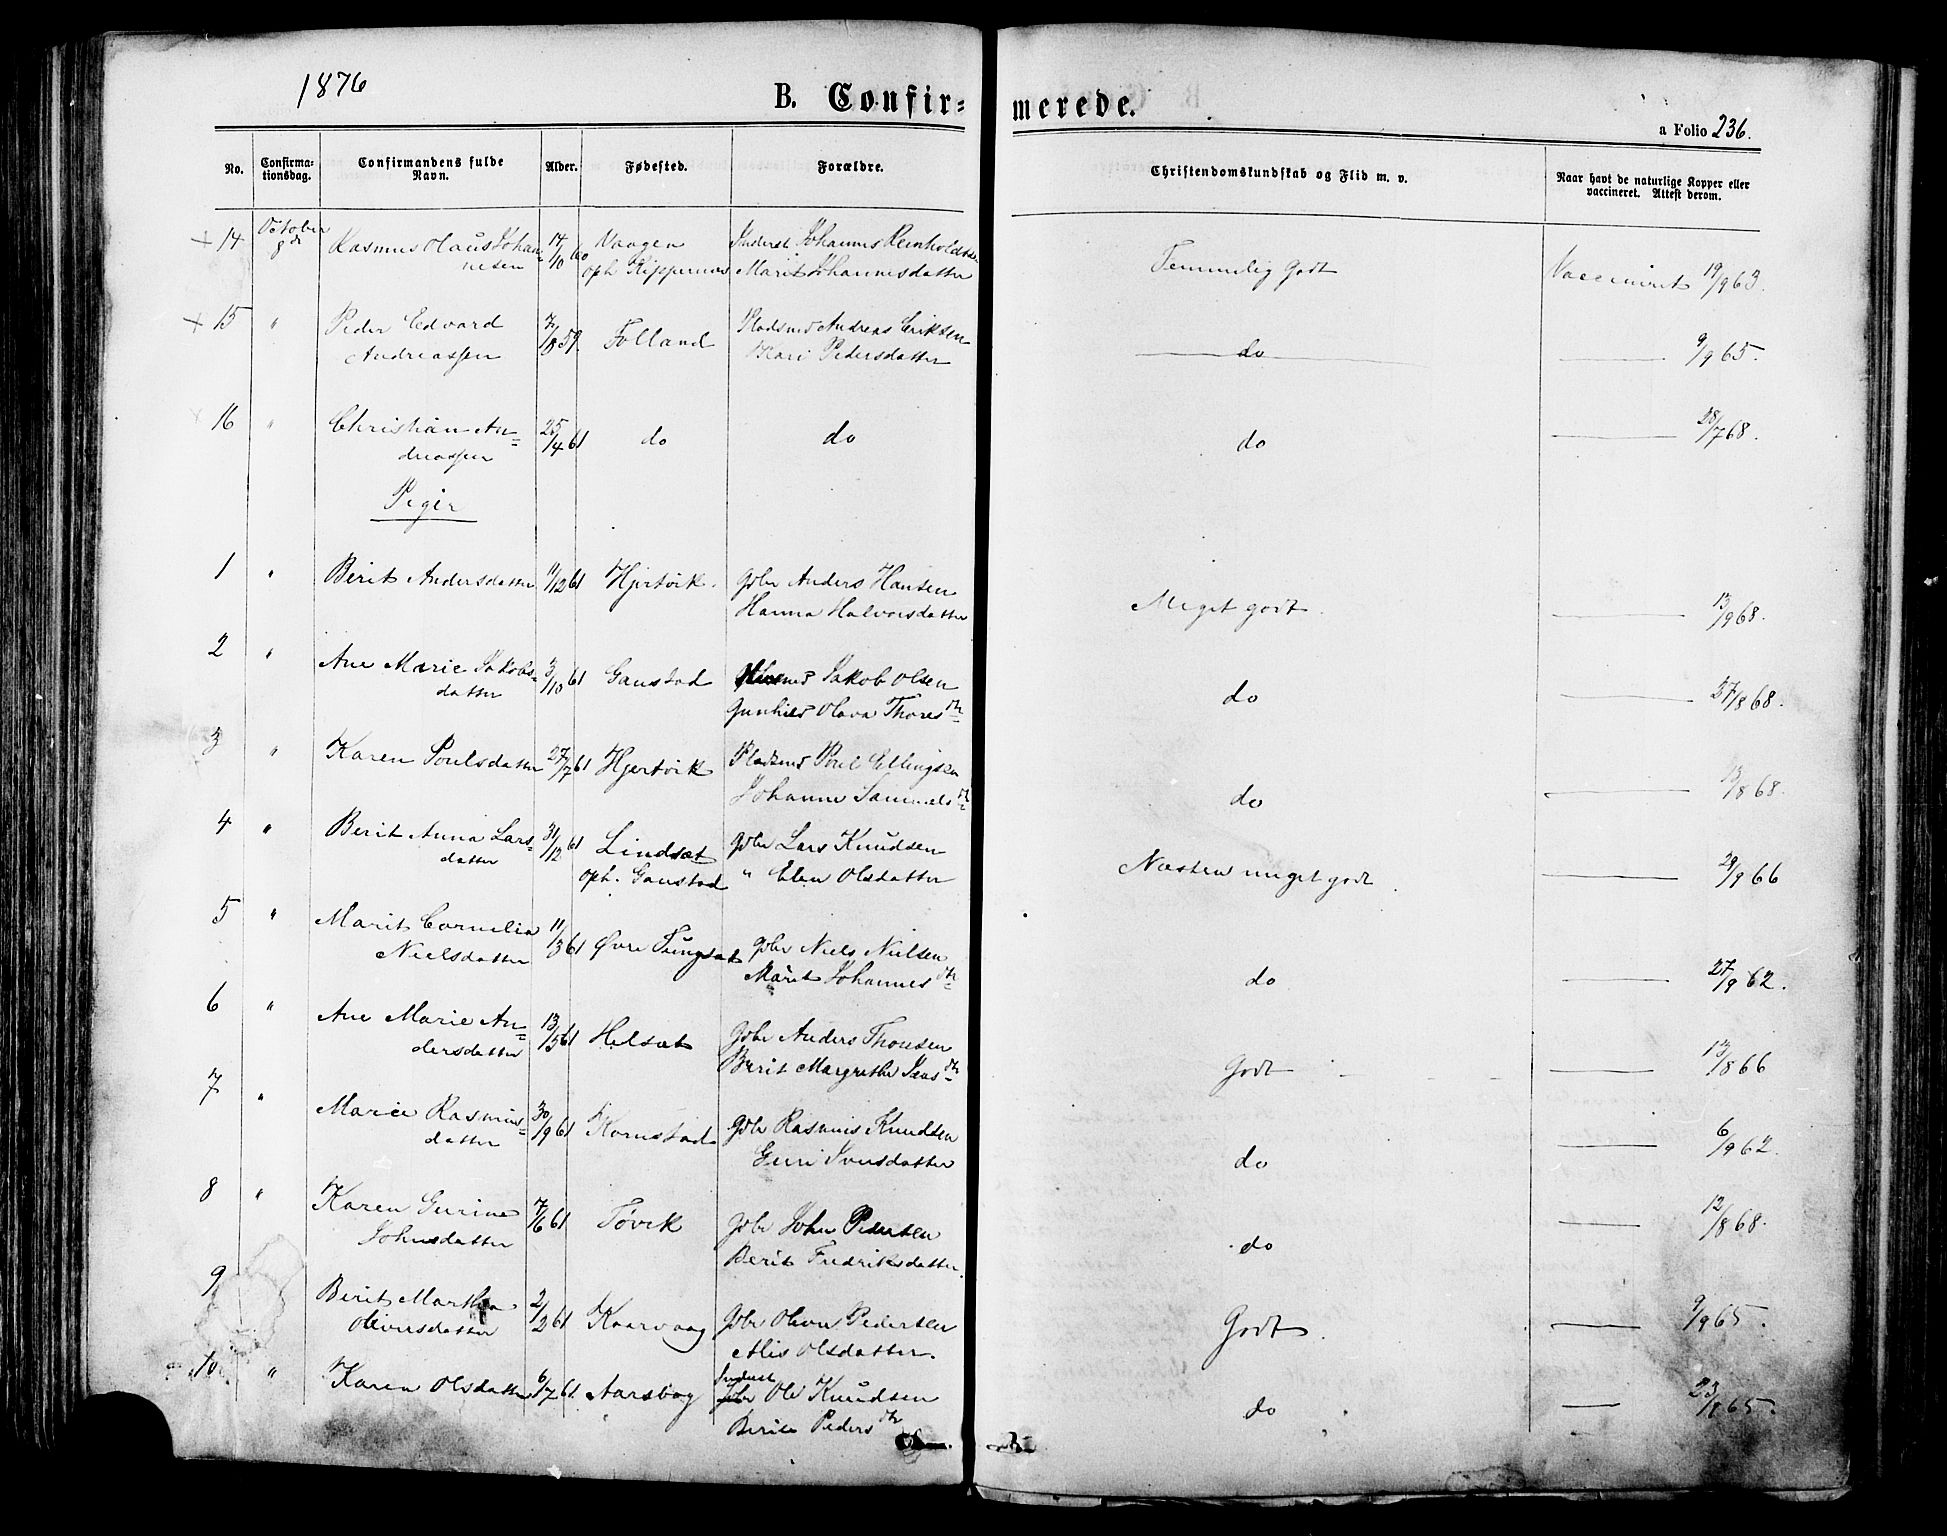 1876
B. Confirmerede.
a Folio 236.
No. Confirmationsdag. Confirmandens fulde Navn. Alder. Fødested. Forældre. Christendomskundskab og Flid m. v. Naar havt de naturlige Kopper eller vaccineret. Attest derom.
+ 14 October 8de Rasmus Olaus Johan= 14/10 60 Vaagen Inderst Johannes Reinholdsen
nesen oph. Kippernæs Marit Johannesdatter Temmelig godt Vaccineret 19/9 63.
+ 15 " Peder Edvard 7/8 59. Folland Pladsmd Andreas Eriksen
Andreassen Kari Pedersdatter do 9/9 65.
+ 16 " Christian An= 25/4 61 do do do 28/7 68.
dreassen
Piger
1 " Berit Andersdatter 11/12 61 Hjertvik. Gbr Anders Hansen
Hanna Halvorsdatter Meget godt. 13/9 68.
2 " Ane Marie Jakobs= 3/10 61 Gaustad Jakob Olsen
datter Gunhild Olava Thores dtr do 27/8 68.
3 " Karen Poulsdatter 27/7 61 Hjertvik Pladsmd Poul Ellingsen
Johanne Samuels dtr do 13/8 68.
4 " Berit Anna Lars= 31/12 61 Lindsæt Gbr Lars Knudsen
datter oph. Gaustad " Elen Olsdatter Næsten meget godt. 29/9 66
5 " Marit Cornelia 11/3 61 Øvre Tungsæt Gbr Niels Nielsen
Nielsdatter Marit Johannes dtr do 27/9 62.
6 " Ane Marie An= 13/5 61 Helsæt Gbr Anders Thoresen
dersdatter Berit Margrethe Jens dtr Godt 13/8 66
7 " Marie Rasmus= 30/9 61 Kornstad Gbr Rasmus Knudsen
datter Guri Iversdatter do 6/9 62.
8 " Karen Gurine 7/6 61 Tøvik Gbr John Pedersen
Johnsdatter Berit Fredriksdatter. do 12/8 68.
9 Berit Martha 2/2 61 Kaarvaag Gbr Oliver Pedersen
Oliversdatter Alis Olsdatter. Godt. 9/9 65.
10 " Karen Olsdatter 6/7 61 Aarsbog Inderst Ole Knudsen
Berit Peders dtr do 23/9 65.